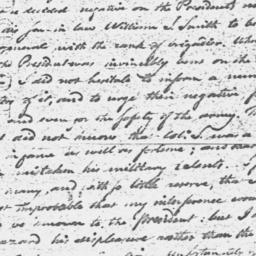 a decided negative on the President's
son-in law William S Smith to be
general with the rank of brigadier. Wh
President was invincibly bent on the
I did not hesitate to inform a num
of it, and to urge their negative f
and even for the safety of the army. T
did not know the Col: was a
in game as well as fortune; and
mistaken his military talents. I
many, and with so little reserve, that
improbable that my interference wou
known to the President: but I
hazard his displeasure rather than th